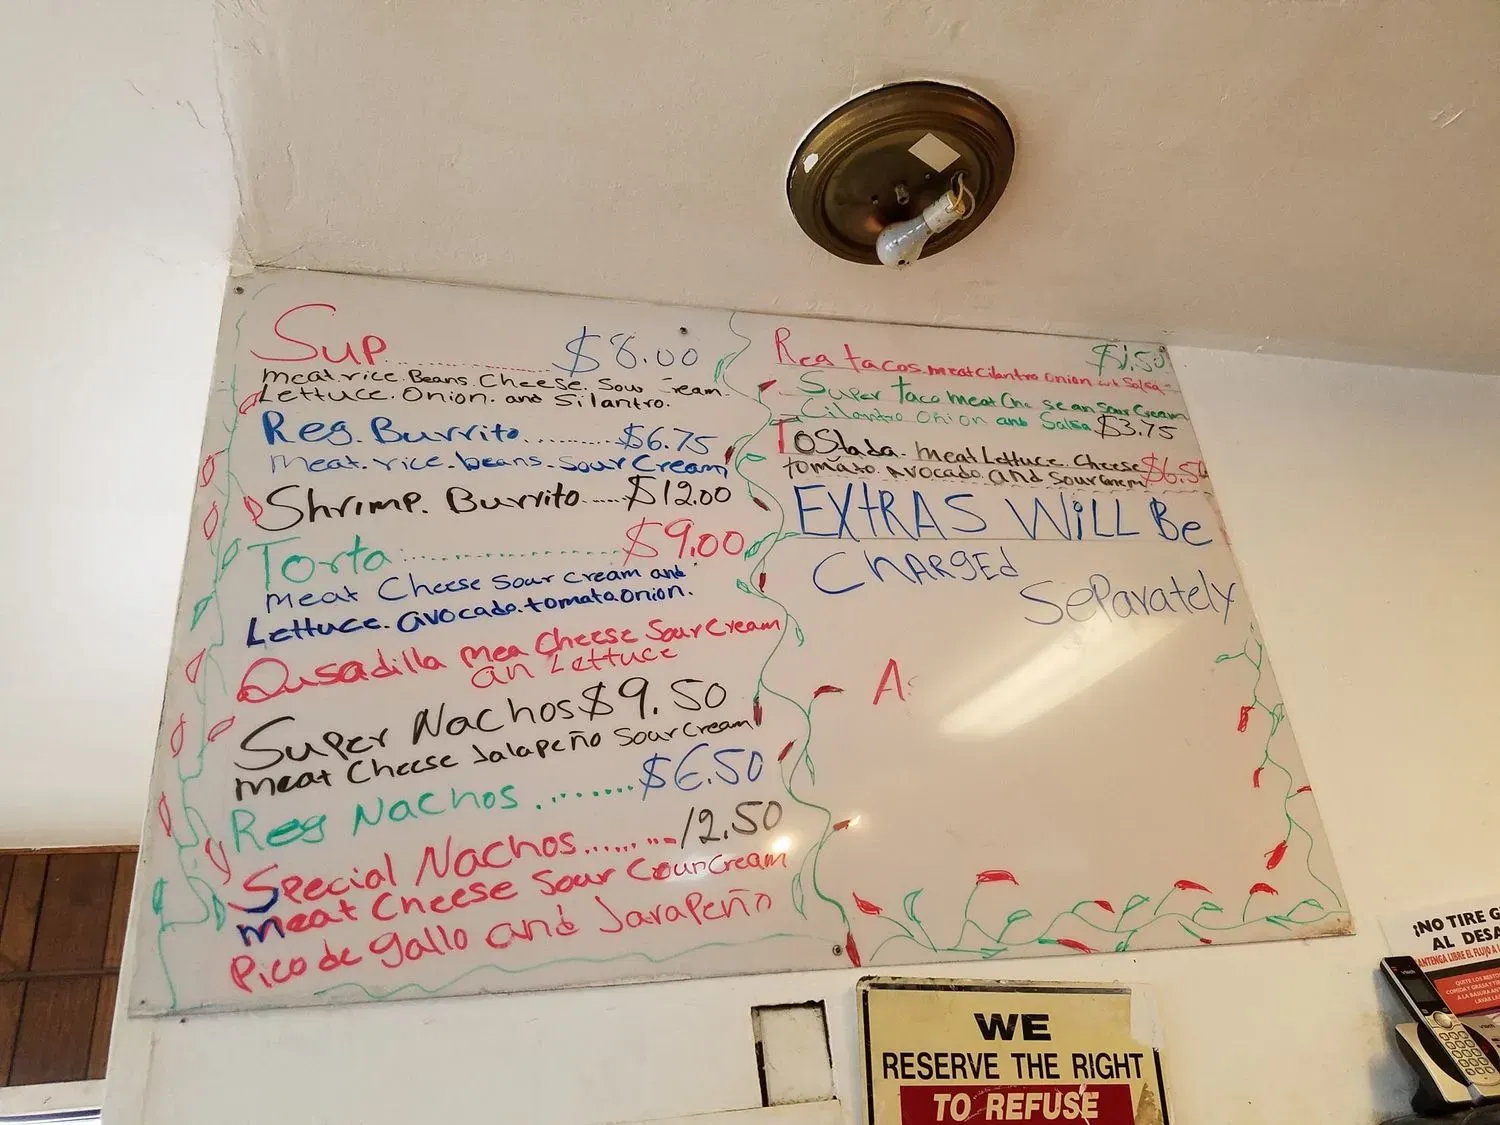 Sup.......... $8.00
meat.rice.Beans.Cheese.Sour ream.
Lettuce.Onion.and Silantro.
Reg.Burrito..........$6.75
meat.rice.beans.sour Cream
Shrimp. Burrito.....$12.00
Torta ...................... $9.00
meat Cheese sour cream and
Lettuce.avocado.tomata onion.
Qusadilla mea Cheese Sour Cream
an Lettuce
Super Nachos $9.50
meat Cheese Jalapeño sour cream
Reg Nachos ......... $6.50
Special Nachos......... 12.50
meat Cheese Sour Cream
Pico de gallo and Jarapeño
Reg tacos meat Cilantro onion Salsa $1.50
Super taco meat Che se an Sour Cream
Cilantro Onion and Salsa $3.75
Tostada. meat Lettuce. Cheese $6.50
tomato. Avocado and sour
EXtRAS WiLL Be
CHARGEd
Separately
A
WE
RESERVE THE RIGHT
TO REFUSE
¡NO TIRE
AL DESA
MANTENGA LIBRE EL FLUJO A
QUITE LOS
COMIDA GRASA Y
A LA BASURA
LAVAR
vtech